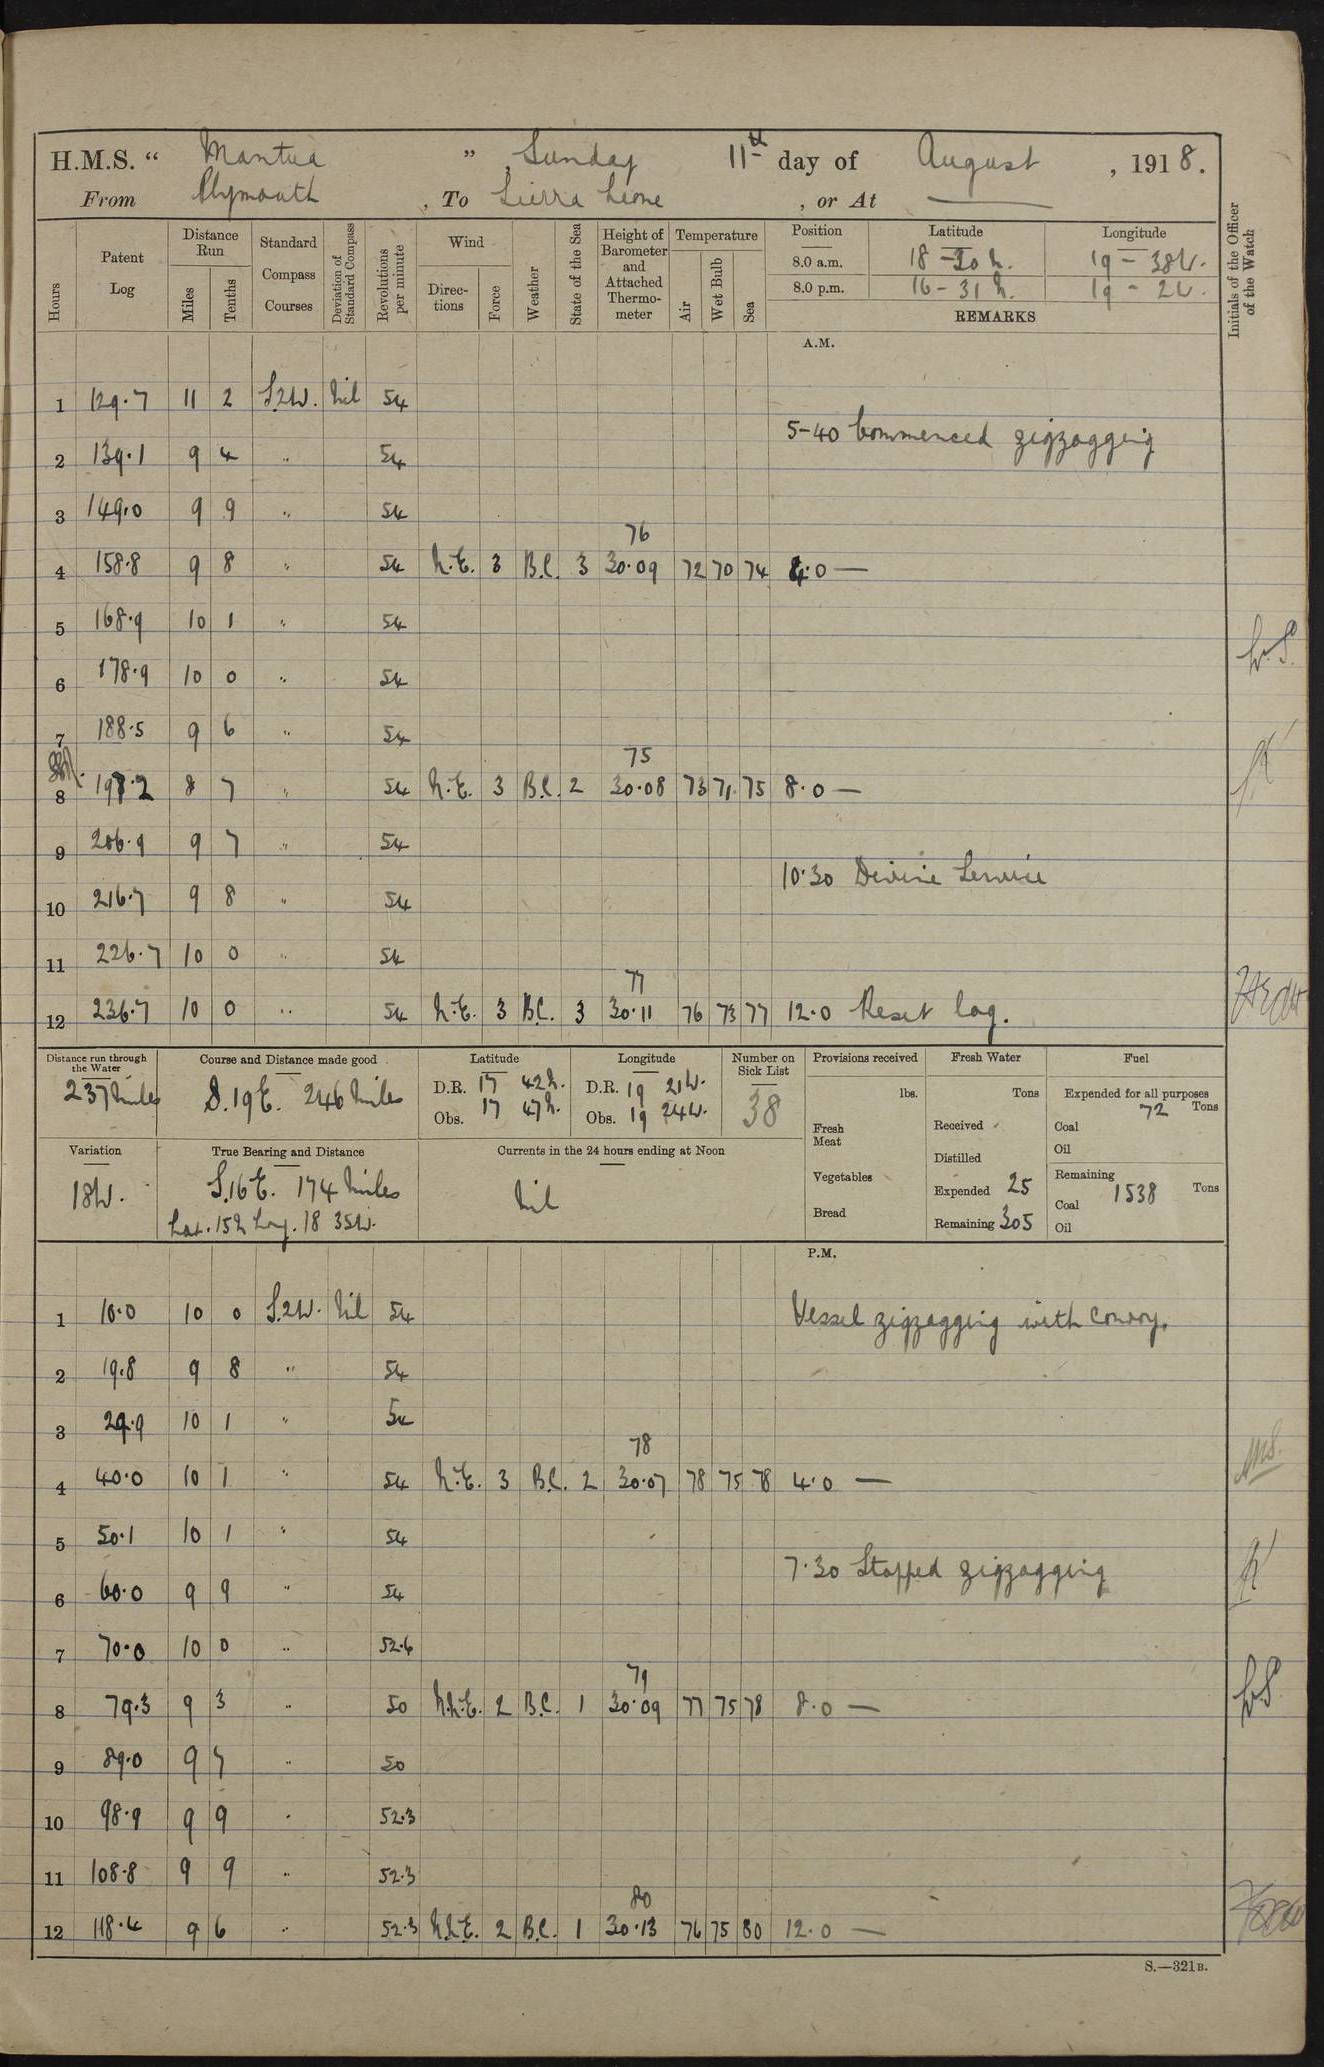 H.M.S. “ Mantua ” , Sunday 11th day of August , 1918.
From Plymouth , To Sierra Leone , or At —
Hours Patent Log Distance Run Miles Tenths Standard Compass Courses Deviation of Standard Compass Revolutions per minute Wind Directions Force Weather State of the Sea Height of Barometer and Attached Thermometer Temperature Air Wet Bulb Sea Position Latitude Longitude Initials of the Officer of the Watch
8.0 a.m. 18-20 N. 19-38W.
8.0 p.m. 16-31 N. 19-2W.
REMARKS
A.M.
1 129.7 11 2 S.2W. Nil 54
5-40 Commenced zigzagging
2 139.1 9 4 " 54
3 149.0 9 9 " 54
76
4 158.8 9 8 " 54 N.E. 3 B.C. 3 30.09 72 70 74 4.0 —
5 168.9 10 1 " 54
6 178.9 10 0 " 54
7 188.5 9 6 " 54
75
8 197.2 8 7 " 54 N.E. 3 B.C. 2 30.08 73 71. 75 8.0 —
9 206.9 9 7 " 54
10.30 Divine Service
10 216.7 9 8 " 54
11 226.7 10 0 " 54
77
12 236.7 10 0 " 54 N.E. 3 B.C. 3 30.11 76 73 77 12.0 Reset log.
Distance run through the Water Course and Distance made good Latitude Longitude Number on Sick List Provisions received Fresh Water Fuel
237 Miles S.19E. 246 Miles D.R. 17 42N. D.R. 19 21W. 38 lbs. Tons Expended for all purposes
Obs. 17 47N. Obs. 19 24W. Fresh Meat Received Coal 72 Tons
Oil
Variation True Bearing and Distance Currents in the 24 hours ending at Noon Vegetables Distilled Remaining
18W. S.16E. 174 Miles Nil Expended 25 Coal 1538 Tons
Lat. 15N Long. 18 35W. Bread Remaining 305 Oil
P.M.
1 10.0 10 0 S.2W. Nil 54 Vessel zigzagging with convoy.
2 19.8 9 8 " 54
3 29.9 10 1 " 54
78
4 40.0 10 1 " 54 N.E. 3 B.C. 2 30.07 78 75 78 4.0 —
5 50.1 10 1 " 54
7.30 Stopped zigzagging
6 60.0 9 9 " 54
7 70.0 10 0 " 52.6
79
8 79.3 9 3 " 50 N.N.E. 2 B.C. 1 30.09 77 75 78 8.0 —
9 89.0 9 7 " 50
10 98.9 9 9 " 52.3
11 108.8 9 9 " 52.3
80
12 118.4 9 6 " 52.3 N.N.E. 2 B.C. 1 30.13 76 75 80 12.0 —
S.—321B.